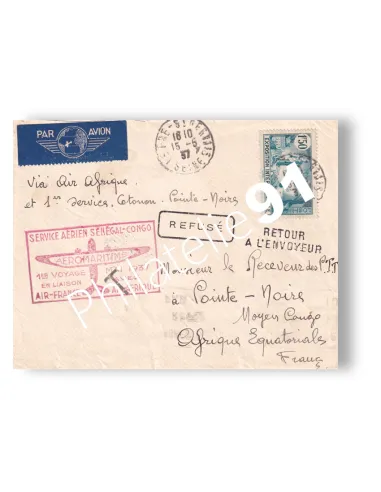 PAR AVION
LE PRE-ST GERVAIS
16 10
15 -3
37
SEINE
1F50
Via Air Afrique.
et 1er Service, Cotonou. Pointe-Noire
REFUSÉ
RETOUR
A L'ENVOYEUR
SERVICE AÉRIEN SÉNÉGAL-CONGO
AEROMARITIME
1er VOYAGE
1937
EN LIAISON
AVEC
AIR-FRANCE
AIR AFRIQUE
T
Monsieur le Receveur des P.T.T
à Pointe-Noire
Moyen Congo
Afrique Equatoriale
Franç
Philatelie 91